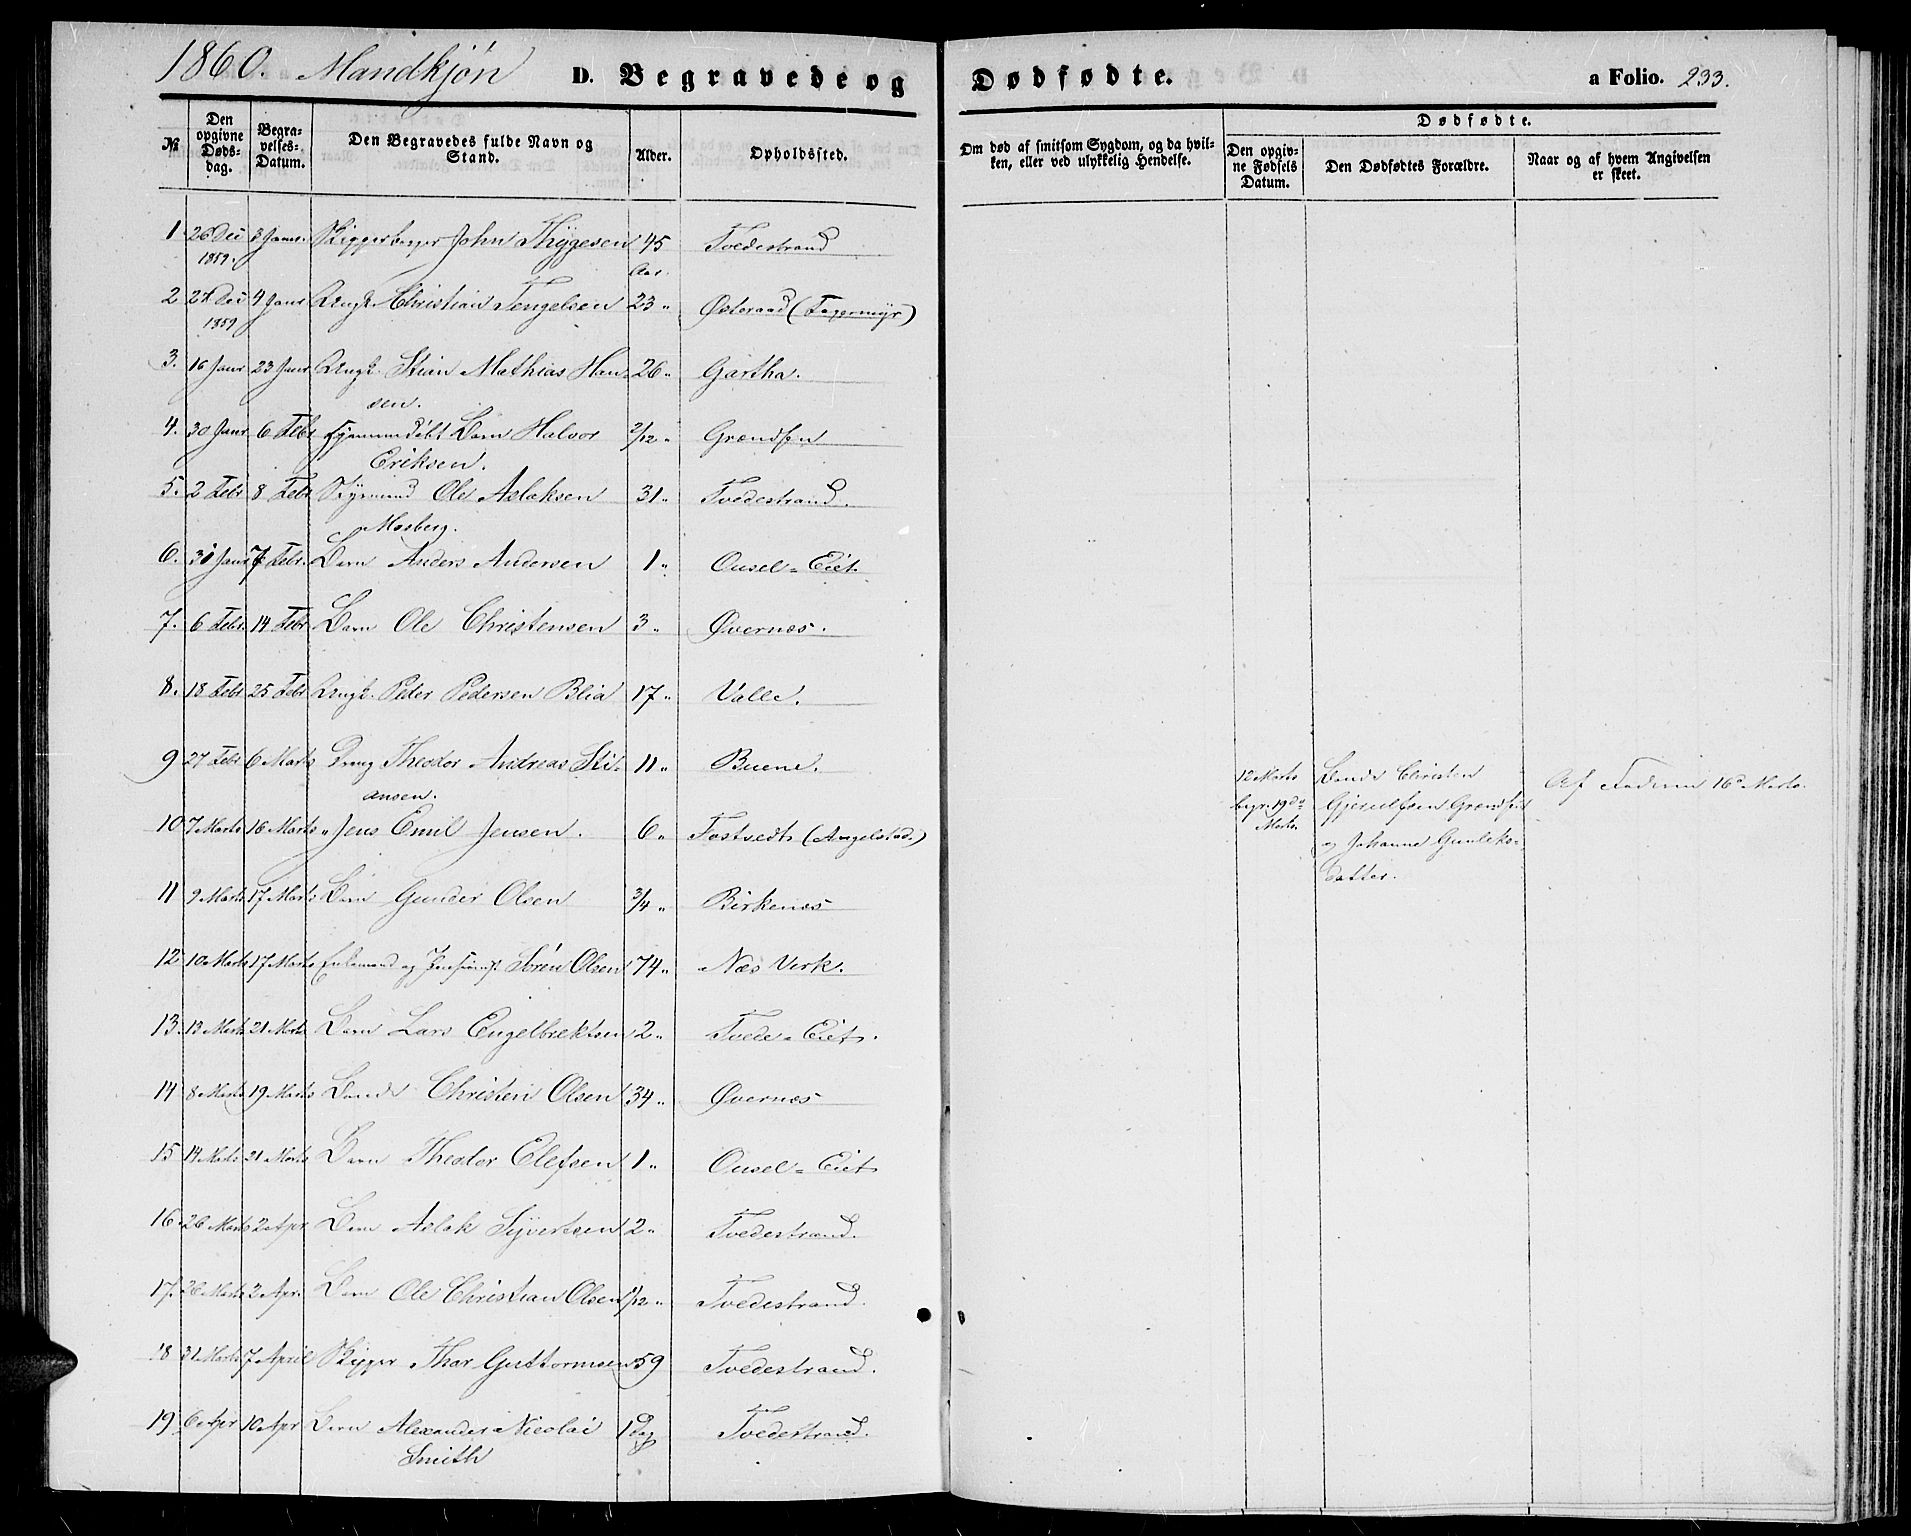 1860. Mandkjøn D. Begravede og Dødfødte. a Folio. 233.
No. Den opgivne Døds-dag. Begra-velses-Datum. Den Begravedes fulde Navn og Stand. Alder. Opholdssted. Om død af smitsom Sygdom, og da hvil-ken, eller ved ulykkelig Hendelse. Dødfødte. Den opgiv-ne Fødsels Datum. Den Dødfødtes Forældre. Naar og af hvem Angivelsen er skeet.
1 26 Dec 1859. 3 Janr. Skipperborger John Thygesen 45 Aar. Tvedestrand
2 27 Dec 1859 4 Janr Ungk. Christian Tengelsen 23 " Østeraad (Fagermyr)
3. 16 Janr 23 Janr Ungk. Stian Mathias Han-
sen. 26 " Gartha.
4. 30 Janr 6 Febr Hjemmedøbt Barn Halvor
Eriksen. 2/12 " Grændsen
5. 2 Febr 8 Febr Styrmand Ole Aslaksen
Mosberg. 31 " Tvedestrand.
6. 31 Janr 7 Febr. Barn Anders Andersen 1 " Ousel-Eiet.
7. 6 Febr. 14 Febr Barn Ole Christensen 3 " Øvernæs.
8. 18 Febr 25 Febr Ungk. Peder Pedersen Blia 17 " Valle.
9 27 Febr 6 Marts Dreng Theodor Andreas Sti-
ansen. 11 " Buene.
12 Marts
begr. 19de
Marts. Gaards Christen
Gjerulfsen Grændsen
og Johanne Gunleks-
datter. Af Faderen 16de Marts.
10 7 Marts 16 Marts " Jens Emil Jensen. 6 " Fostvedt (Angelstad.)
11 9 Marts 17 Marts Barn Gunder Olsen 3/4 " Birkenæs
12 10 Marts 17 Marts Enkemand og Pensionist Søren Olsen 74 " Næs Verk.
13. 13 Marts 21 Marts Barn Lars Engelbrektsen 2 " Tvede-Eiet.
14 8 Marts 19 Marts Christen Olsen 34 " Øvernæs
15 14 Marts 21 Marts Barn Theodor Elefsen 1 " Ousel-Eiet
16 26 Marts 2 Apr Barn Aslak Syvertsen 2 " Tvedestrand.
17. 26 Marts 2 Apr. Barn Ole Christian Olsen 1/12 " Tvedestrand.
18 31 Marts 7 April Skipper Thor Guttormsen 59 Tvedestrand.
19 6 Apr 10 Apr Barn Alexander Nicolai
Smith 1 Dag Tvedestrand.